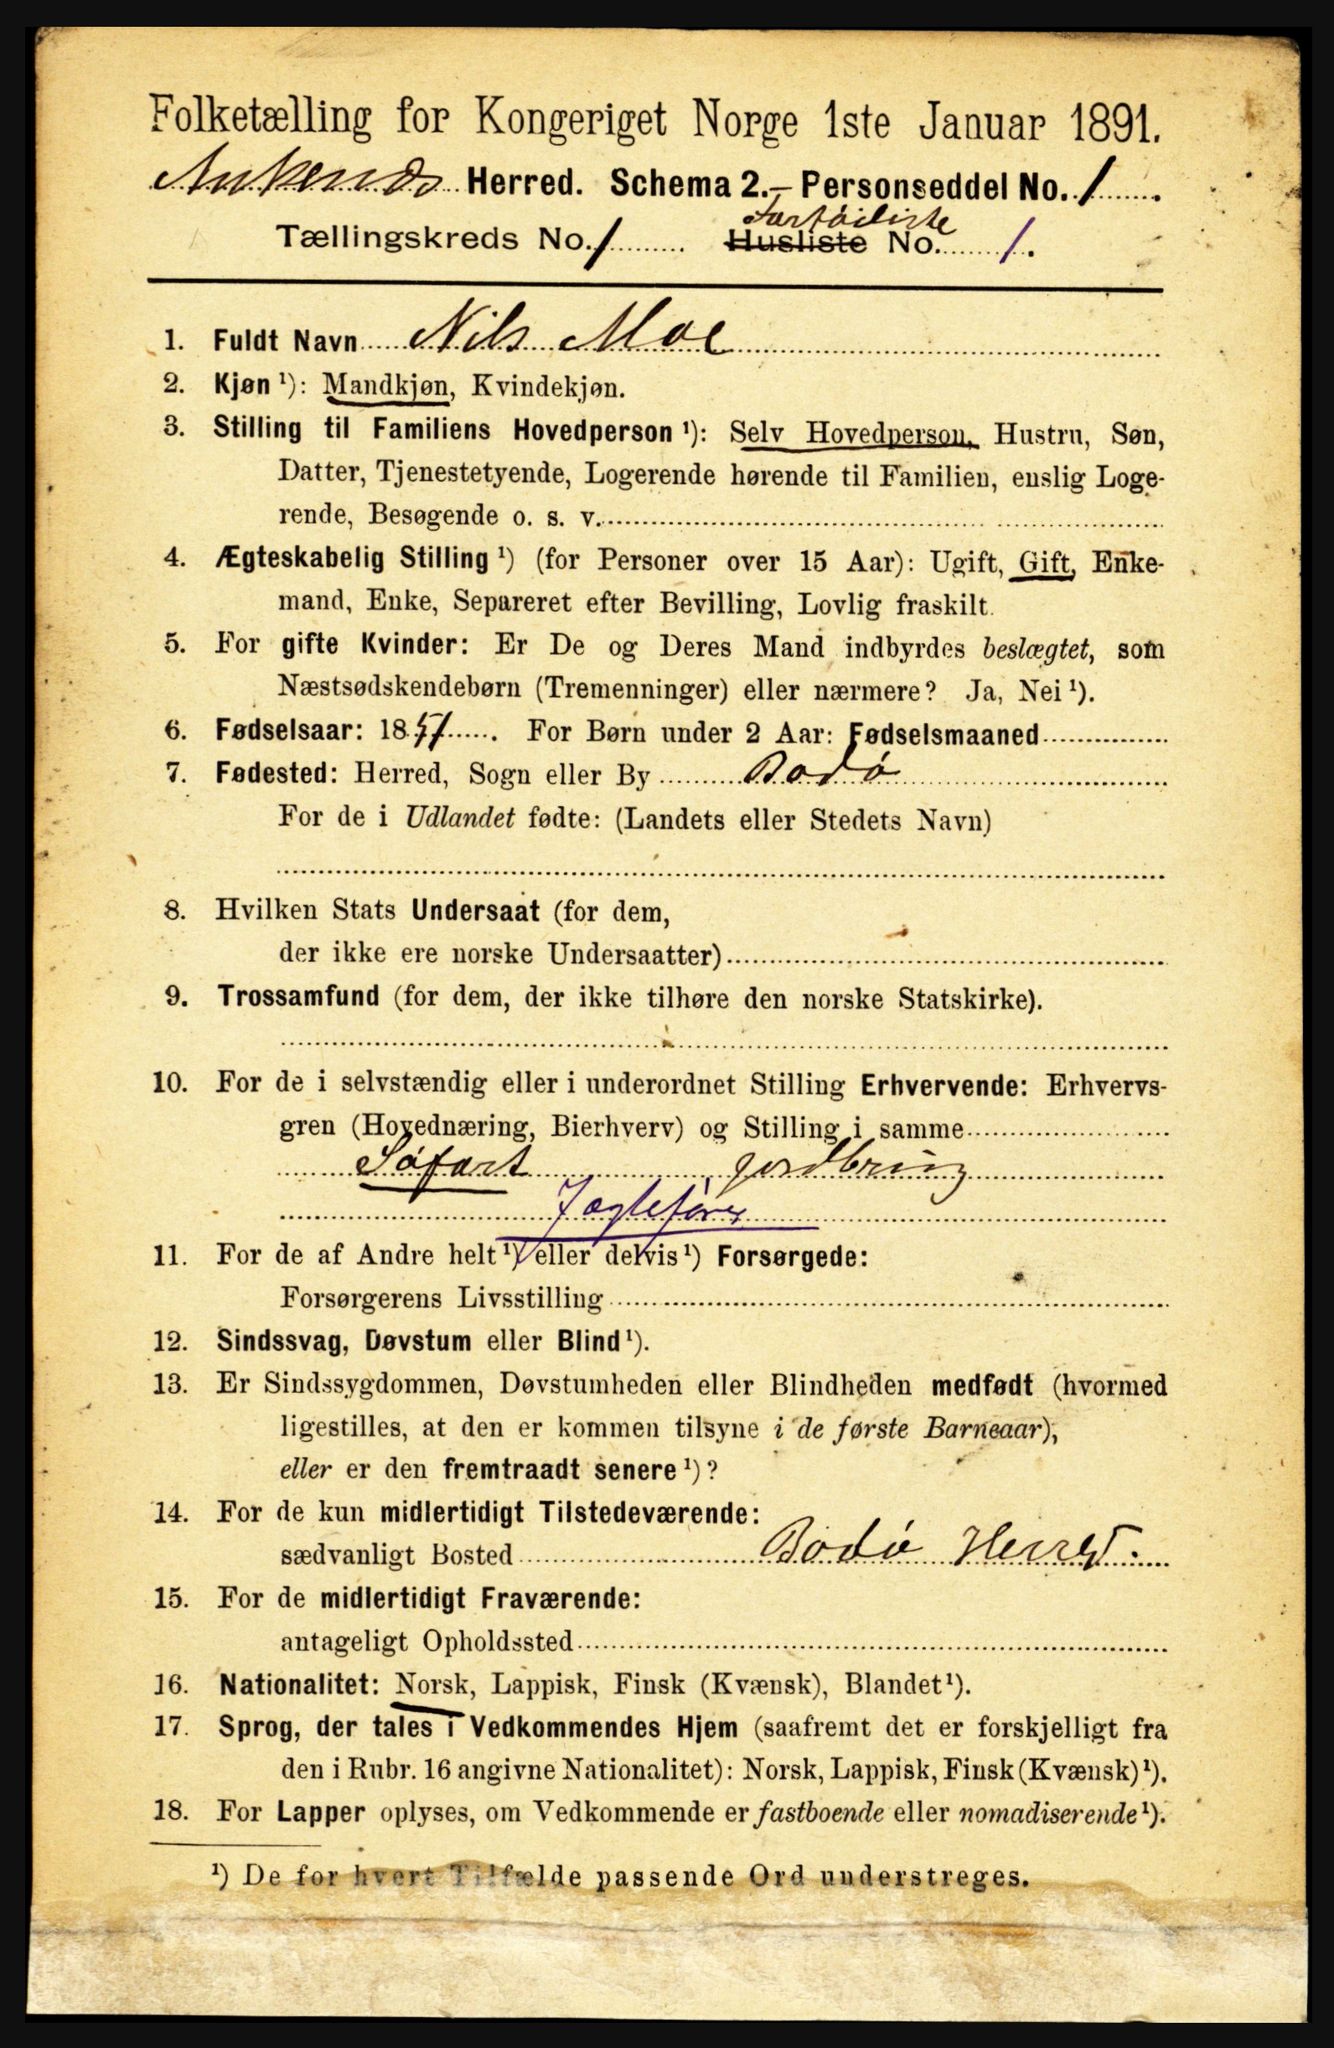 Folketælling for Kongeriget Norge 1ste Januar 1891.
Ankenes Herred. Schema 2. - Personseddel No. 1.
Fartøiliste
Tællingskreds No. 1 Husliste No. 1.
1. Fuldt Navn Nils Moe
2. Kjøn ¹): Mandkjøn, Kvindekjøn.
3. Stilling til Familiens Hovedperson ¹): Selv Hovedperson, Hustru, Søn,
Datter, Tjenestetyende, Logerende hørende til Familien, enslig Loge-
rende, Besøgende o. s. v.
4. Ægteskabelig Stilling ¹) (for Personer over 15 Aar): Ugift, Gift, Enke-
mand, Enke, Separeret efter Bevilling, Lovlig fraskilt.
5. For gifte Kvinder: Er De og Deres Mand indbyrdes beslægtet, som
Næstsødskendebørn (Tremenninger) eller nærmere? Ja, Nei ¹).
6. Fødselsaar: 1857. For Børn under 2 Aar: Fødselsmaaned
7. Fødested: Herred, Sogn eller By Bodø
For de i Udlandet fødte: (Landets eller Stedets Navn)
8. Hvilken Stats Undersaat (for dem,
der ikke ere norske Undersaatter)
9. Trossamfund (for dem, der ikke tilhøre den norske Statskirke).
10. For de i selvstændig eller i underordnet Stilling Erhvervende: Erhvervs-
gren (Hovednæring, Bierhverv) og Stilling i samme
Søfart jordbrug
Jægtefører
11. For de af Andre helt ¹) eller delvis ¹) Forsørgede:
Forsørgerens Livsstilling
12. Sindssvag, Døvstum eller Blind ¹).
13. Er Sindssygdommen, Døvstumheden eller Blindheden medfødt (hvormed
ligestilles, at den er kommen tilsyne i de første Barneaar),
eller er den fremtraadt senere ¹)?
14. For de kun midlertidigt Tilstedeværende:
sædvanligt Bosted Bodø Herred.
15. For de midlertidigt Fraværende:
antageligt Opholdssted
16. Nationalitet: Norsk, Lappisk, Finsk (Kvænsk), Blandet ¹).
17. Sprog, der tales i Vedkommendes Hjem (saafremt det er forskjelligt fra
den i Rubr. 16 angivne Nationalitet): Norsk, Lappisk, Finsk (Kvænsk) ¹).
18. For Lapper oplyses, om Vedkommende er fastboende eller nomadiserende ¹).
¹) De for hvert Tilfælde passende Ord understreges.